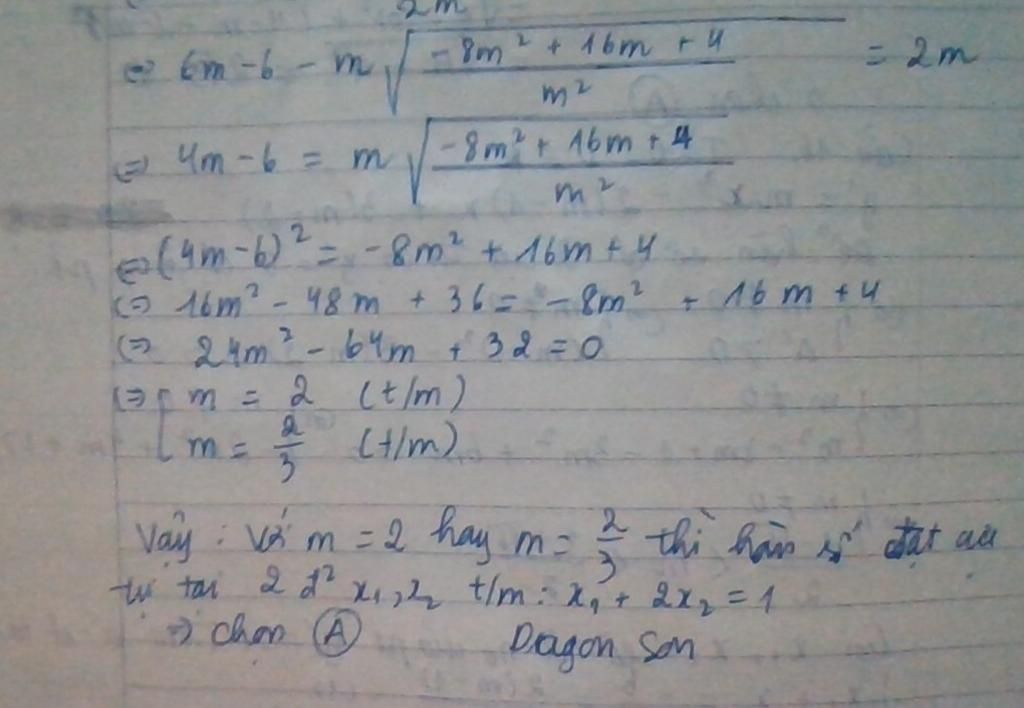 2m
⇔ 6m - 6 - m √((-8m² + 16m + 4)/m²) = 2m
⇔ 4m - 6 = m √((-8m² + 16m + 4)/m²)
⇔ (4m - 6)² = -8m² + 16m + 4
⇔ 16m² - 48m + 36 = -8m² + 16m + 4
⇔ 24m² - 64m + 32 = 0
⇔ [ m = 2 (t/m)
m = 2/3 (t/m)
Vậy : Với m = 2 hay m = 2/3 thì hàm số đạt cực
trị tại 2 đ² x₁, x₂ t/m : x₁ + 2x₂ = 1
⇒ chọn Ⓐ Dragon Son